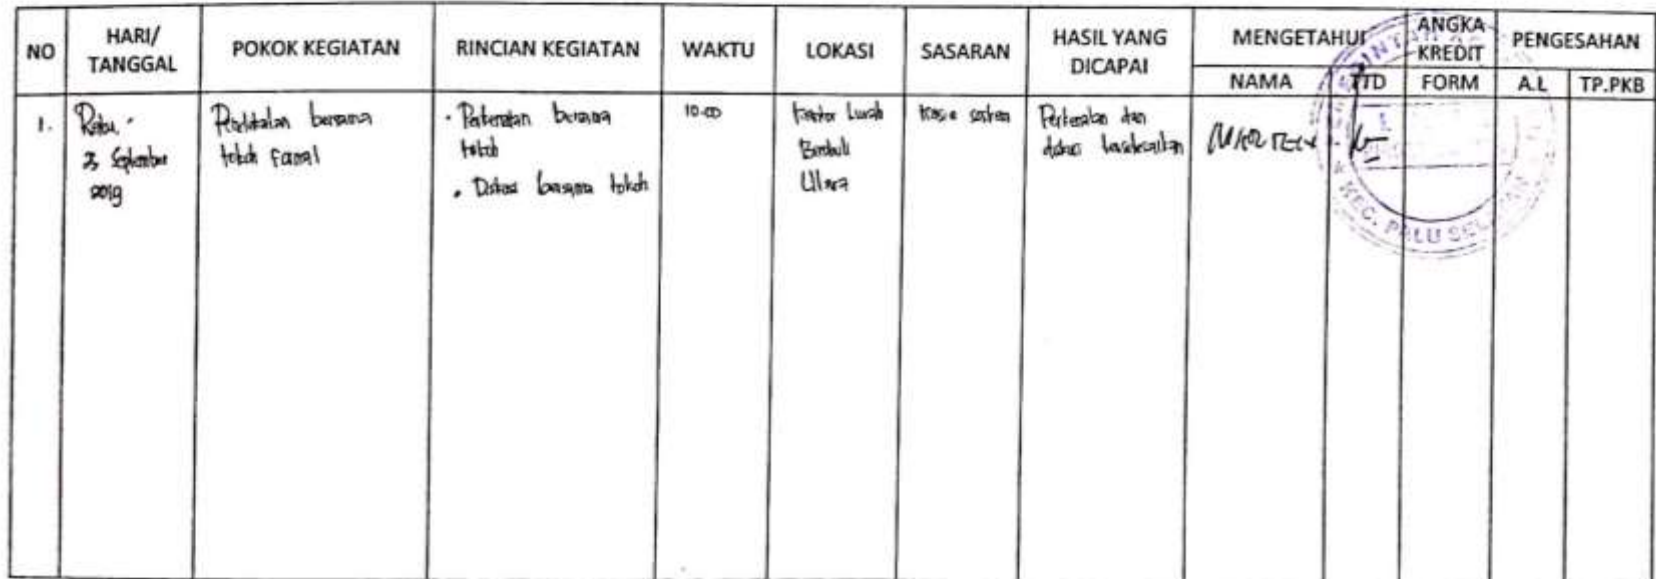 NO
HARI/
TANGGAL
POKOK KEGIATAN
RINCIAN KEGIATAN
WAKTU
LOKASI
SASARAN
HASIL YANG
DICAPAI
MENGETAHUI
NAMA
TTD
ANGKA
KREDIT
FORM
PENGESAHAN
A.L
TP.PKB
1.
Rabu,
September
2019
bersama
tokoh Formal
• Perkenalan bersama
tokoh
• Diskusi bersama tokoh
10.00
Kantor Lurah
Birobuli
Utara
Kasie
Perkenalan dan
diskusi
KEC. PALU SEL